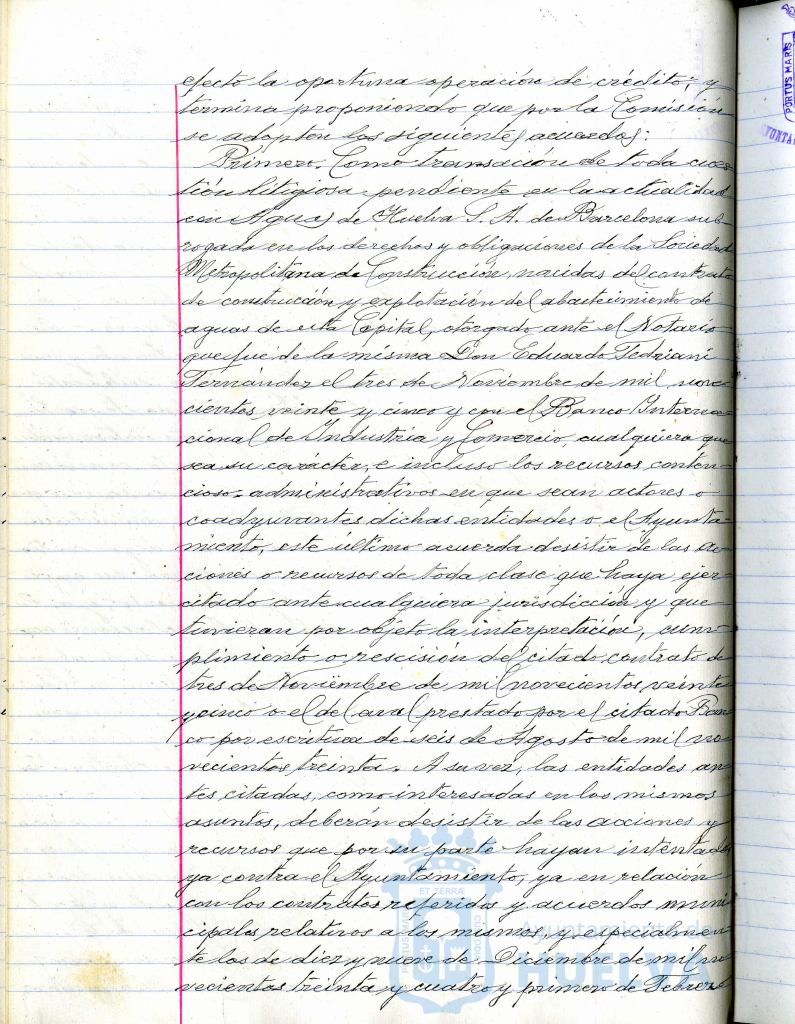 efecto la oportuna operación de crédito; y
termina proponiendo que por la Comisión
se adopten los siguientes acuerdos:
Primero. Como transación de toda cues-
tión litigiosa pendiente en la actualidad
con Aguas de Huelva S. A. de Barcelona sub-
rogada en los derechos y obligaciones de la Sociedad
Metropolitana de Construcción, nacidas del contrato
de construcción y explotación del abastecimiento de
aguas de esta Capital, otorgado ante el Notario
que fué de la misma Don Eduardo Fedriani
Fernández el tres de Noviembre de mil nove-
cientos veinte y cinco y con el Banco Interna-
cional de Industria y Comercio, cualquiera que
sea su carácter, e incluso los recursos conten-
cioso-administrativos en que sean actores o
coadyuvantes dichas entidades o el Ayunta-
miento, este último acuerda desistir de las ac-
ciones o recursos de toda clase que haya ejer-
citado ante cualquiera jurisdicción y que
tuvieran por objeto la interpretación, cum-
plimiento o rescisión del citado contrato de
tres de Noviembre de mil novecientos veinte
y cinco o el de aval prestado por el citado Ban-
co por escritura de seis de Agosto de mil no-
vecientos treinta. A su vez, las entidades an-
tes citadas, como interesadas en los mismos
asuntos, deberán desistir de las acciones y
recursos que por su parte hayan intentado
ya contra el Ayuntamiento, ya en relación
con los contratos referidos y acuerdos muni-
cipales relativos a los mismos, y especialmen-
te los de diez y nueve de Diciembre de mil no-
vecientos treinta y cuatro y primero de Febrero
PORTUS MARIS
ET TERRÆ
Ayuntamiento de
HUELVA
PORTUS MARIS